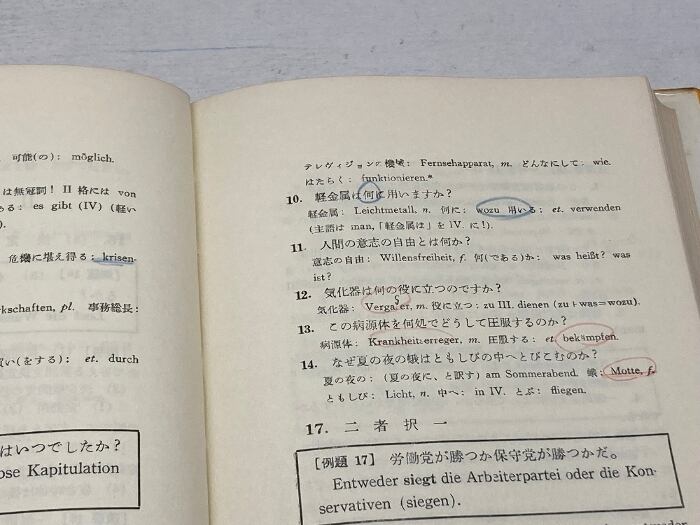 可能(の): möglich.
は無冠詞! II 格には von
ある: es gibt (IV) (軽い
危機に堪え得る: krisen-
rkschaften, pl. 事務総長:
買い(をする): et. durch
はいつでしたか?
ose Kapitulation
テレヴィジョンの機械: Fernsehapparat, m. どんなにして: wie.
はたらく: funktionieren.*
10. 軽金属は何に用いますか?
軽金属: Leichtmetall, n. 何に: wozu 用いる: et. verwenden
(主語は man,「軽金属は」を IV. に!).
11. 人間の意志の自由とは何か?
意志の自由: Willensfreiheit, f. 何(である)か: was heißt? was
ist?
12. 気化器は何の役に立つのですか?
気化器: Vergaser, m. 役に立つ: zu III. dienen (zu+was=wozu).
13. この病源体を何処でどうして圧服するのか?
病源体: Krankheitserreger, m. 圧服する: et. bekämpfen.
14. なぜ夏の夜の蛾はともしびの中へとびこむのか?
夏の夜の: (夏の夜に、と訳す) am Sommerabend. 蛾: Motte, f.
ともしび: Licht, n. 中へ: in IV. とぶ: fliegen.
17. 二者択一
[例題 17] 労働党が勝つか保守党が勝つかだ。
Entweder siegt die Arbeiterpartei oder die Kon-
servativen (siegen).